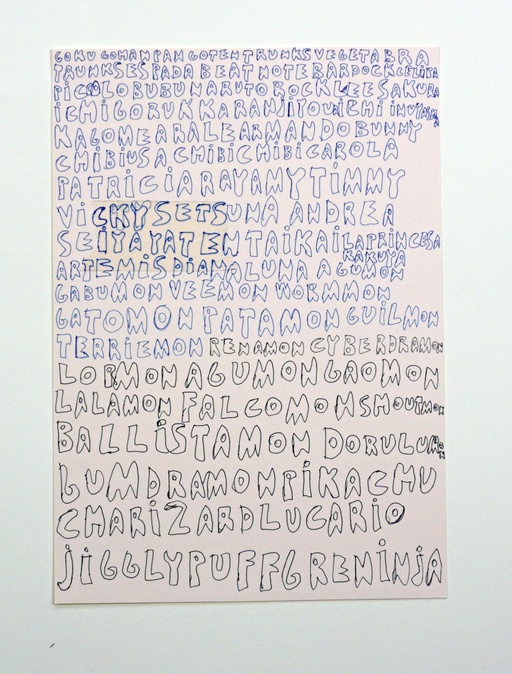 GOKU GOHAN PAN GOTEN TRUNKS VEGETA BRA
TAUNKSES PADA BEAT NOTE BARDOCK CELIPA
PICOLO BUBU NARUTO ROCK LEE SAKURA
ICHIGO RUKKARAN JITOU ICHI INUYASHA
KAGOME ARALE ARMANDO BUNNY
CHIBIUSA CHIBICHIBI CAROLA
PATRICIA RAYAMY TIMMY
VICKY SETSUNA ANDREA
SEIYA YATEN TAIKAI LA PRINCESA
KAKUYA
ARTEMIS DIANA LUNA AGUMON
GABUMON VEEMON WORMMON
GATOMON PATAMON GUILMON
TERRIEMON RENAMON CYBERDRAMON
LOPMON AGUMON GAOMON
LALAMON FALCOMON SHOUTMON
BALLISTAMON DORULUMON
GUMDRAMON PIKACHU
CHARIZARD LUCARIO
JIGGLYPUFF GRENINJA